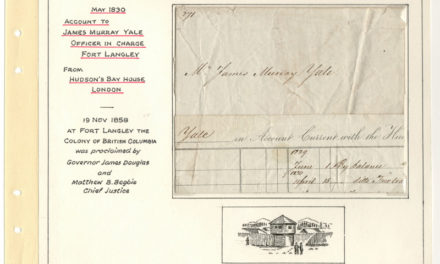 MAY 1830
ACCOUNT TO
JAMES MURRAY YALE
OFFICER IN CHARGE
FORT LANGLEY
FROM
HUDSON'S BAY HOUSE
LONDON
19 NOV 1858
AT FORT LANGLEY THE
COLONY OF BRITISH COLUMBIA
was proclaimed by
Governor James Douglas
and
Matthew B. Begbie
Chief Justice
271
Mr James Murray Yale
Yale in Account Current with the Hud
1829
June 1 By balance
1830
April 18 ditto